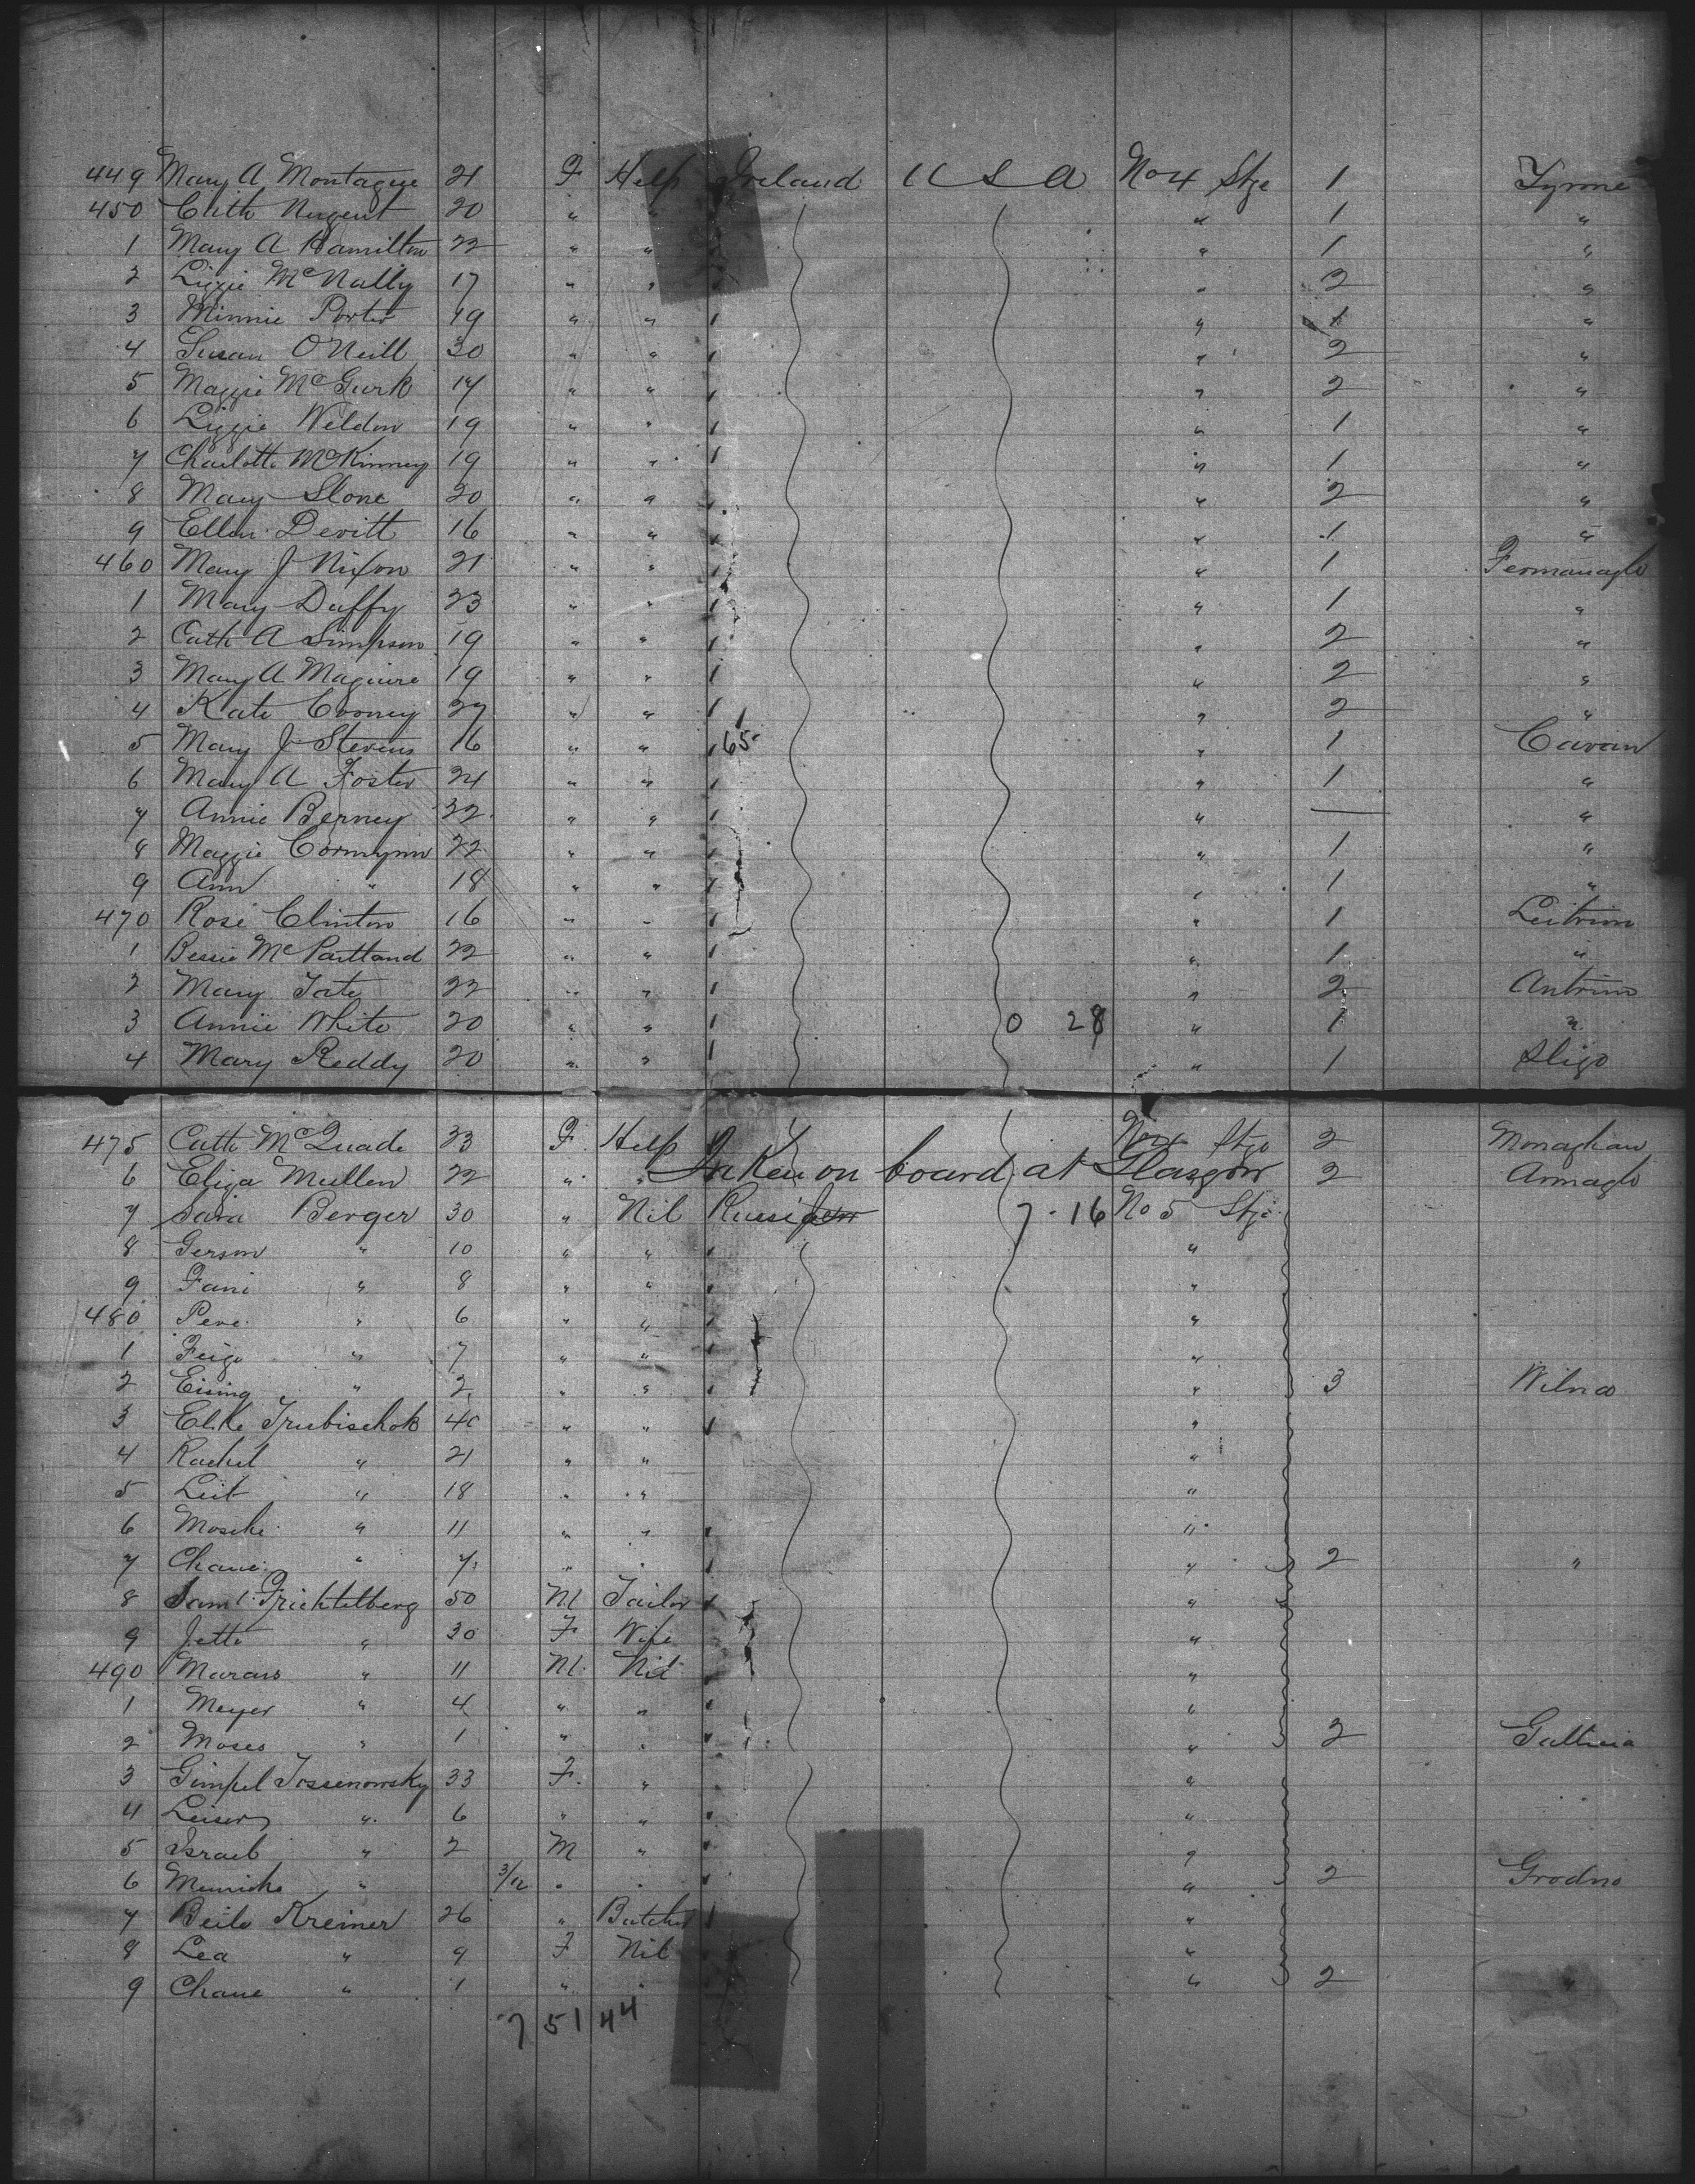 449 Mary A Montague 21 F Help Ireland U S A No 4 Stge 1 Tyrone
450 Cath Nugent 20 " " " 1 "
1 Mary A Hamilton 22 " " " 1 "
2 Lizzie McNally 17 " " " 2 "
3 Minnie Porter 19 " " " 1 "
4 Susan O'Neill 30 " " " 2 "
5 Maggie McGurk 17 " " " 2 "
6 Lizzie Weldon 19 " " " 1 "
7 Charlotte McKinney 19 " " " 1 "
8 Mary Slone 20 " " " 2 "
9 Ellen Devitt 16 " " " 1 "
460 Mary J Nixon 21 " " " 1 Fermanagh
1 Mary Duffy 23 " " " 1 "
2 Cath A Simpson 19 " " " 2 "
3 Mary A Maguire 19 " " " 2 "
4 Kate Cooney 27 " " " 2 "
5 Mary J Stevens 16 " " 65 " 1 Cavan
6 Mary A Foster 24 " " " 1 "
7 Annie Berney 22 " " " — "
8 Maggie Cormynn 22 " " " 1 "
9 Ann " 18 " " " 1 "
470 Rose Clinton 16 " " " 1 Leitrim
1 Bessie McPartland 22 " " " 1 "
2 Mary Tate 22 " " " 2 Antrim
3 Annie White 20 " " 0 28 " 1 "
4 Mary Reddy 20 " " " 1 Sligo
475 Cath McQuade 33 F Help No 4 Stge 2 Monaghan
6 Eliza Mullen 22 " " Taken on board at Glasgow 2 Armagh
7 Sara Berger 30 " Nil Russia 7-16 No 5 Stge
8 Gerson " 10 " " "
9 Fani " 8 " " "
480 Pere " 6 " " "
1 Feige " 7 " " "
2 Eising " 2 " " " 3 Wilna
3 Elke Trubischok 40 " " "
4 Rachel " 21 " " "
5 Leit " 18 " " "
6 Mosche " 11 " " "
7 Chane " 7 " " " 2 "
8 Saml Frichtelberg 50 M Tailor "
9 Jette " 30 F Wife "
490 Marcus " 11 M Nil "
1 Meyer " 4 " " "
2 Moses " 1 " " " 2 Gallicia
3 Gimpel Jossenowsky 33 F " "
4 Leiser " 6 " " "
5 Israel " 2 M " "
6 " 3/12 " " " 2 Grodno
7 Beile Kreiner 26 " Butcher "
8 Lea " 9 F Nil "
9 Chane " 1 " " " 2 "
7 51 44